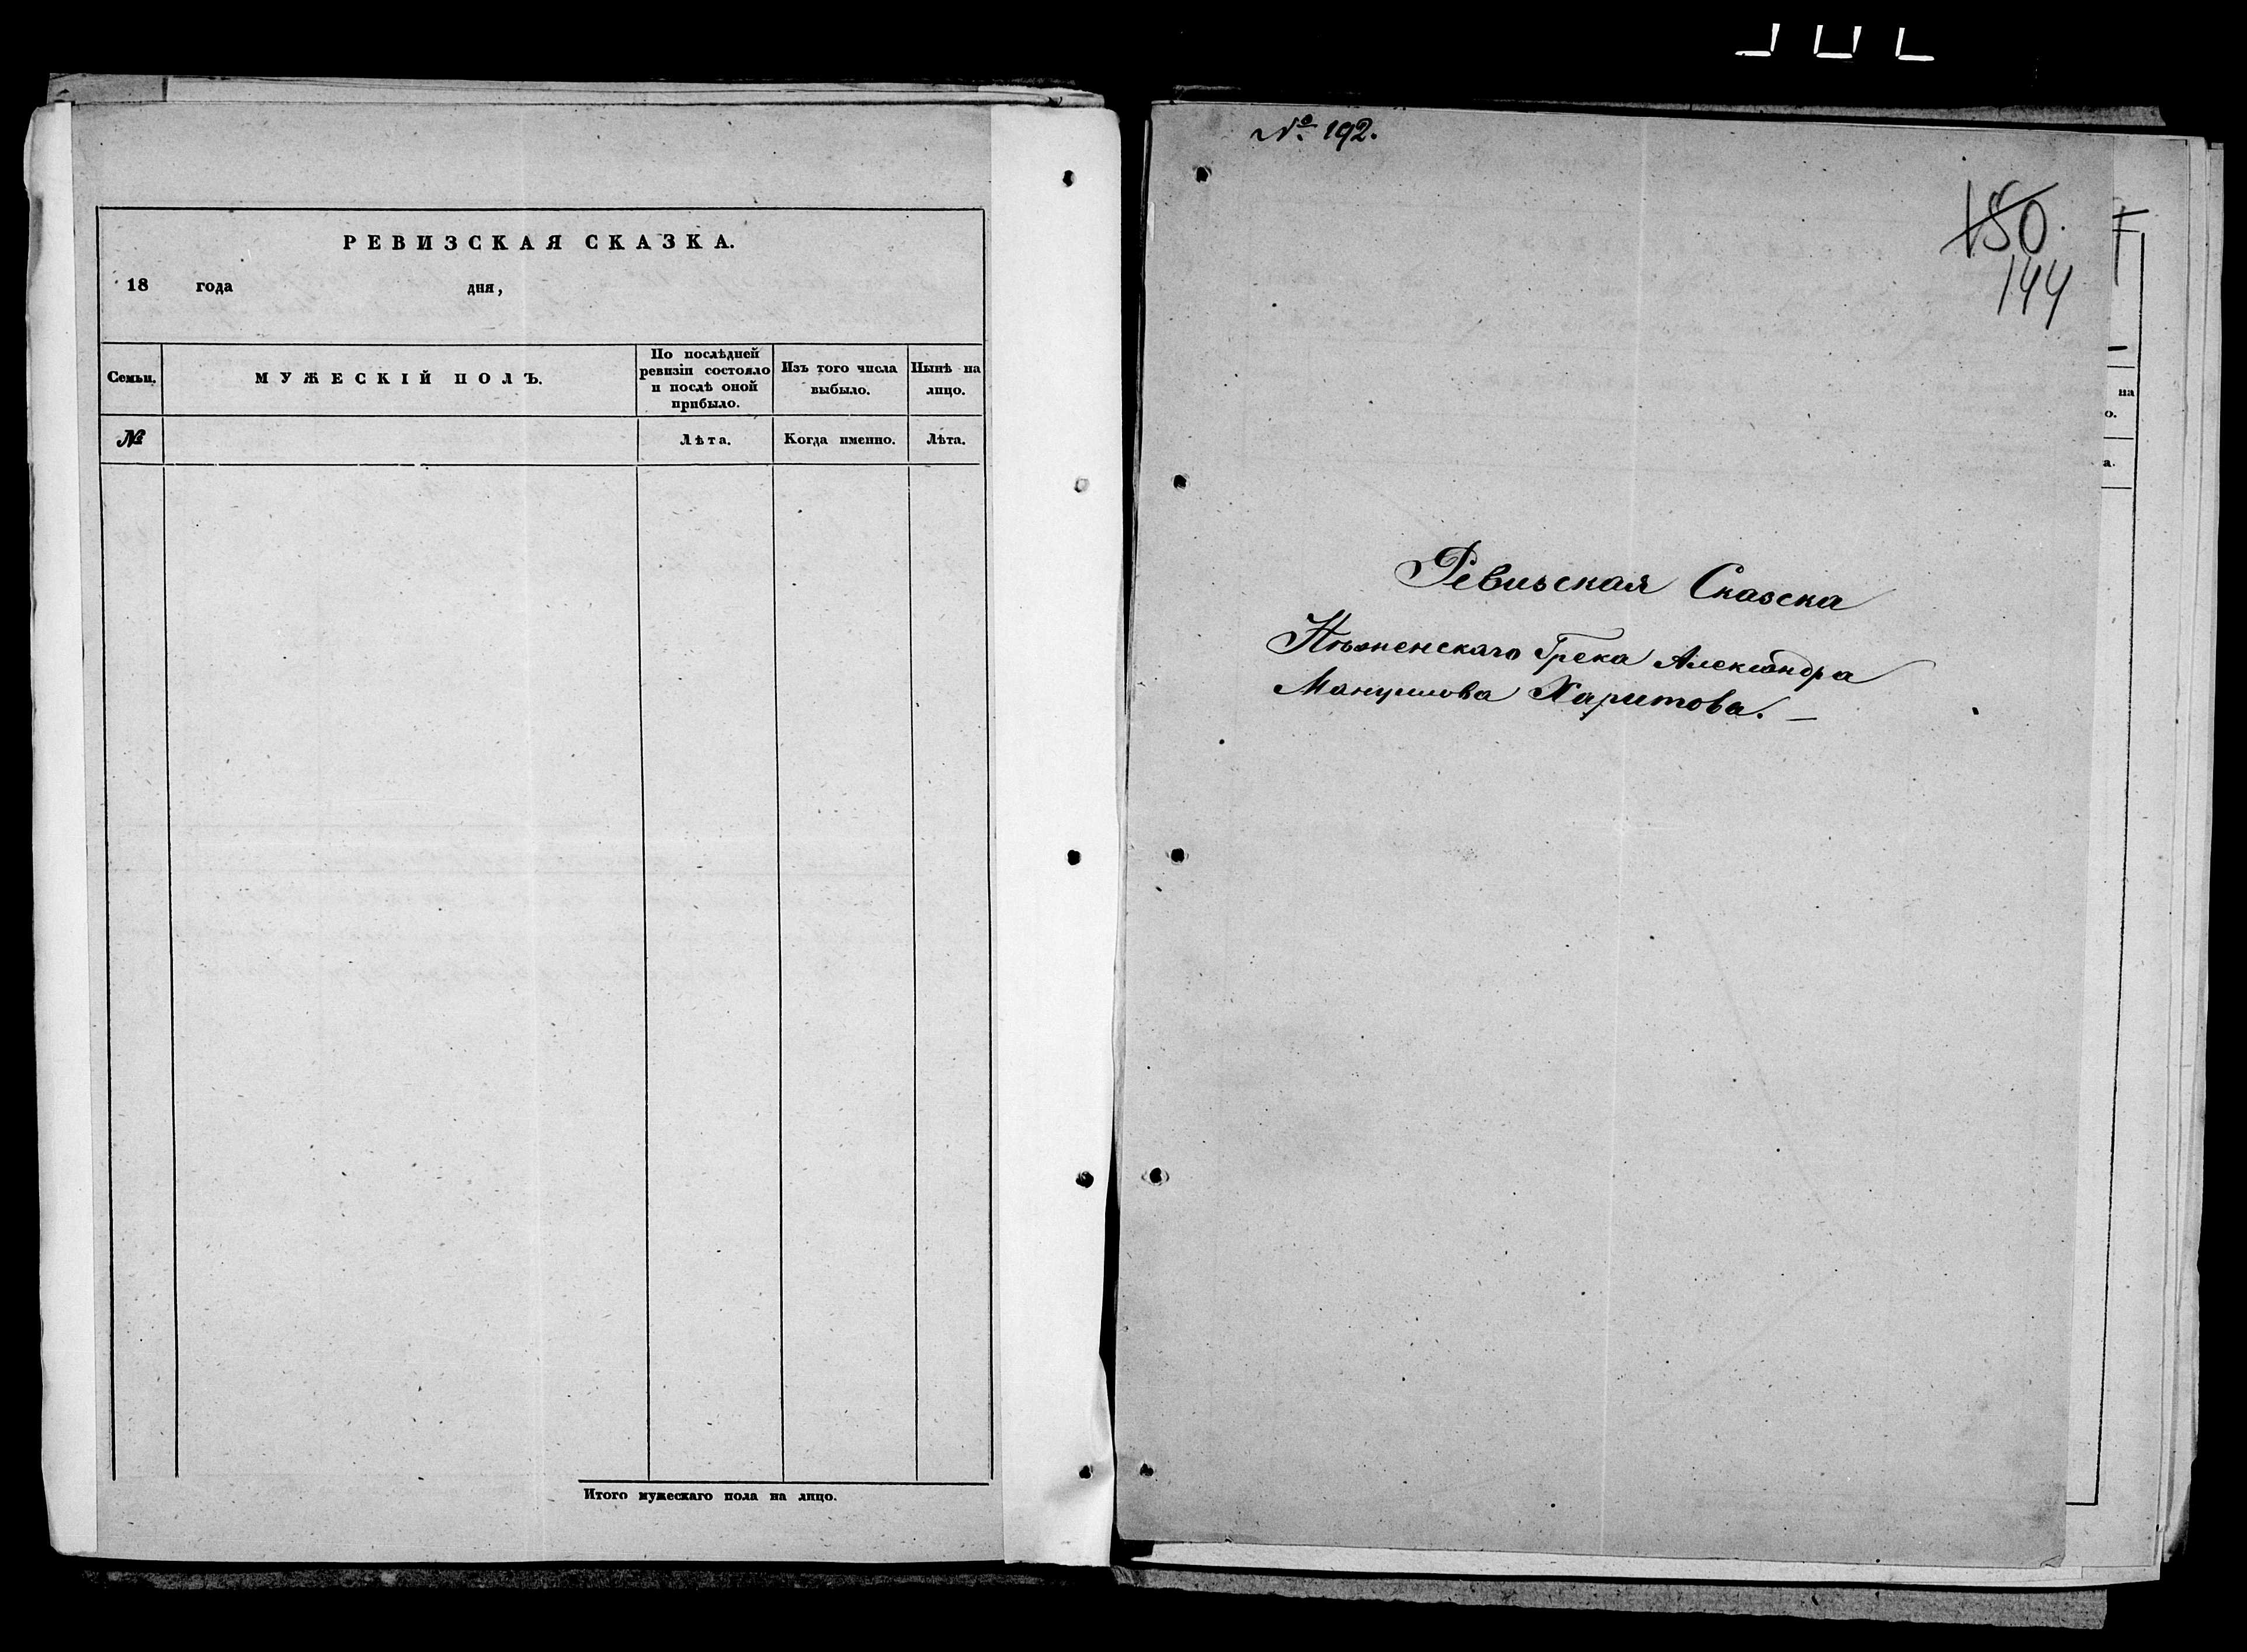 РЕВИЗСКАЯ СКАЗКА.
18 года дня,
Семьи.
МУЖЕСКІЙ ПОЛЪ.
По послѣдней
ревизіи состояло
и послѣ оной
прибыло.
Изъ того числа
выбыло.
Нынѣ на
лицо.
№
Лѣта.
Когда именно.
Лѣта.
Итого мужескаго пола на лицо.
№ 192.
150.
144
Ревизская Сказска
Нѣженскаго Грека Александра
Мануилова Харитова. —
на
о.
а.